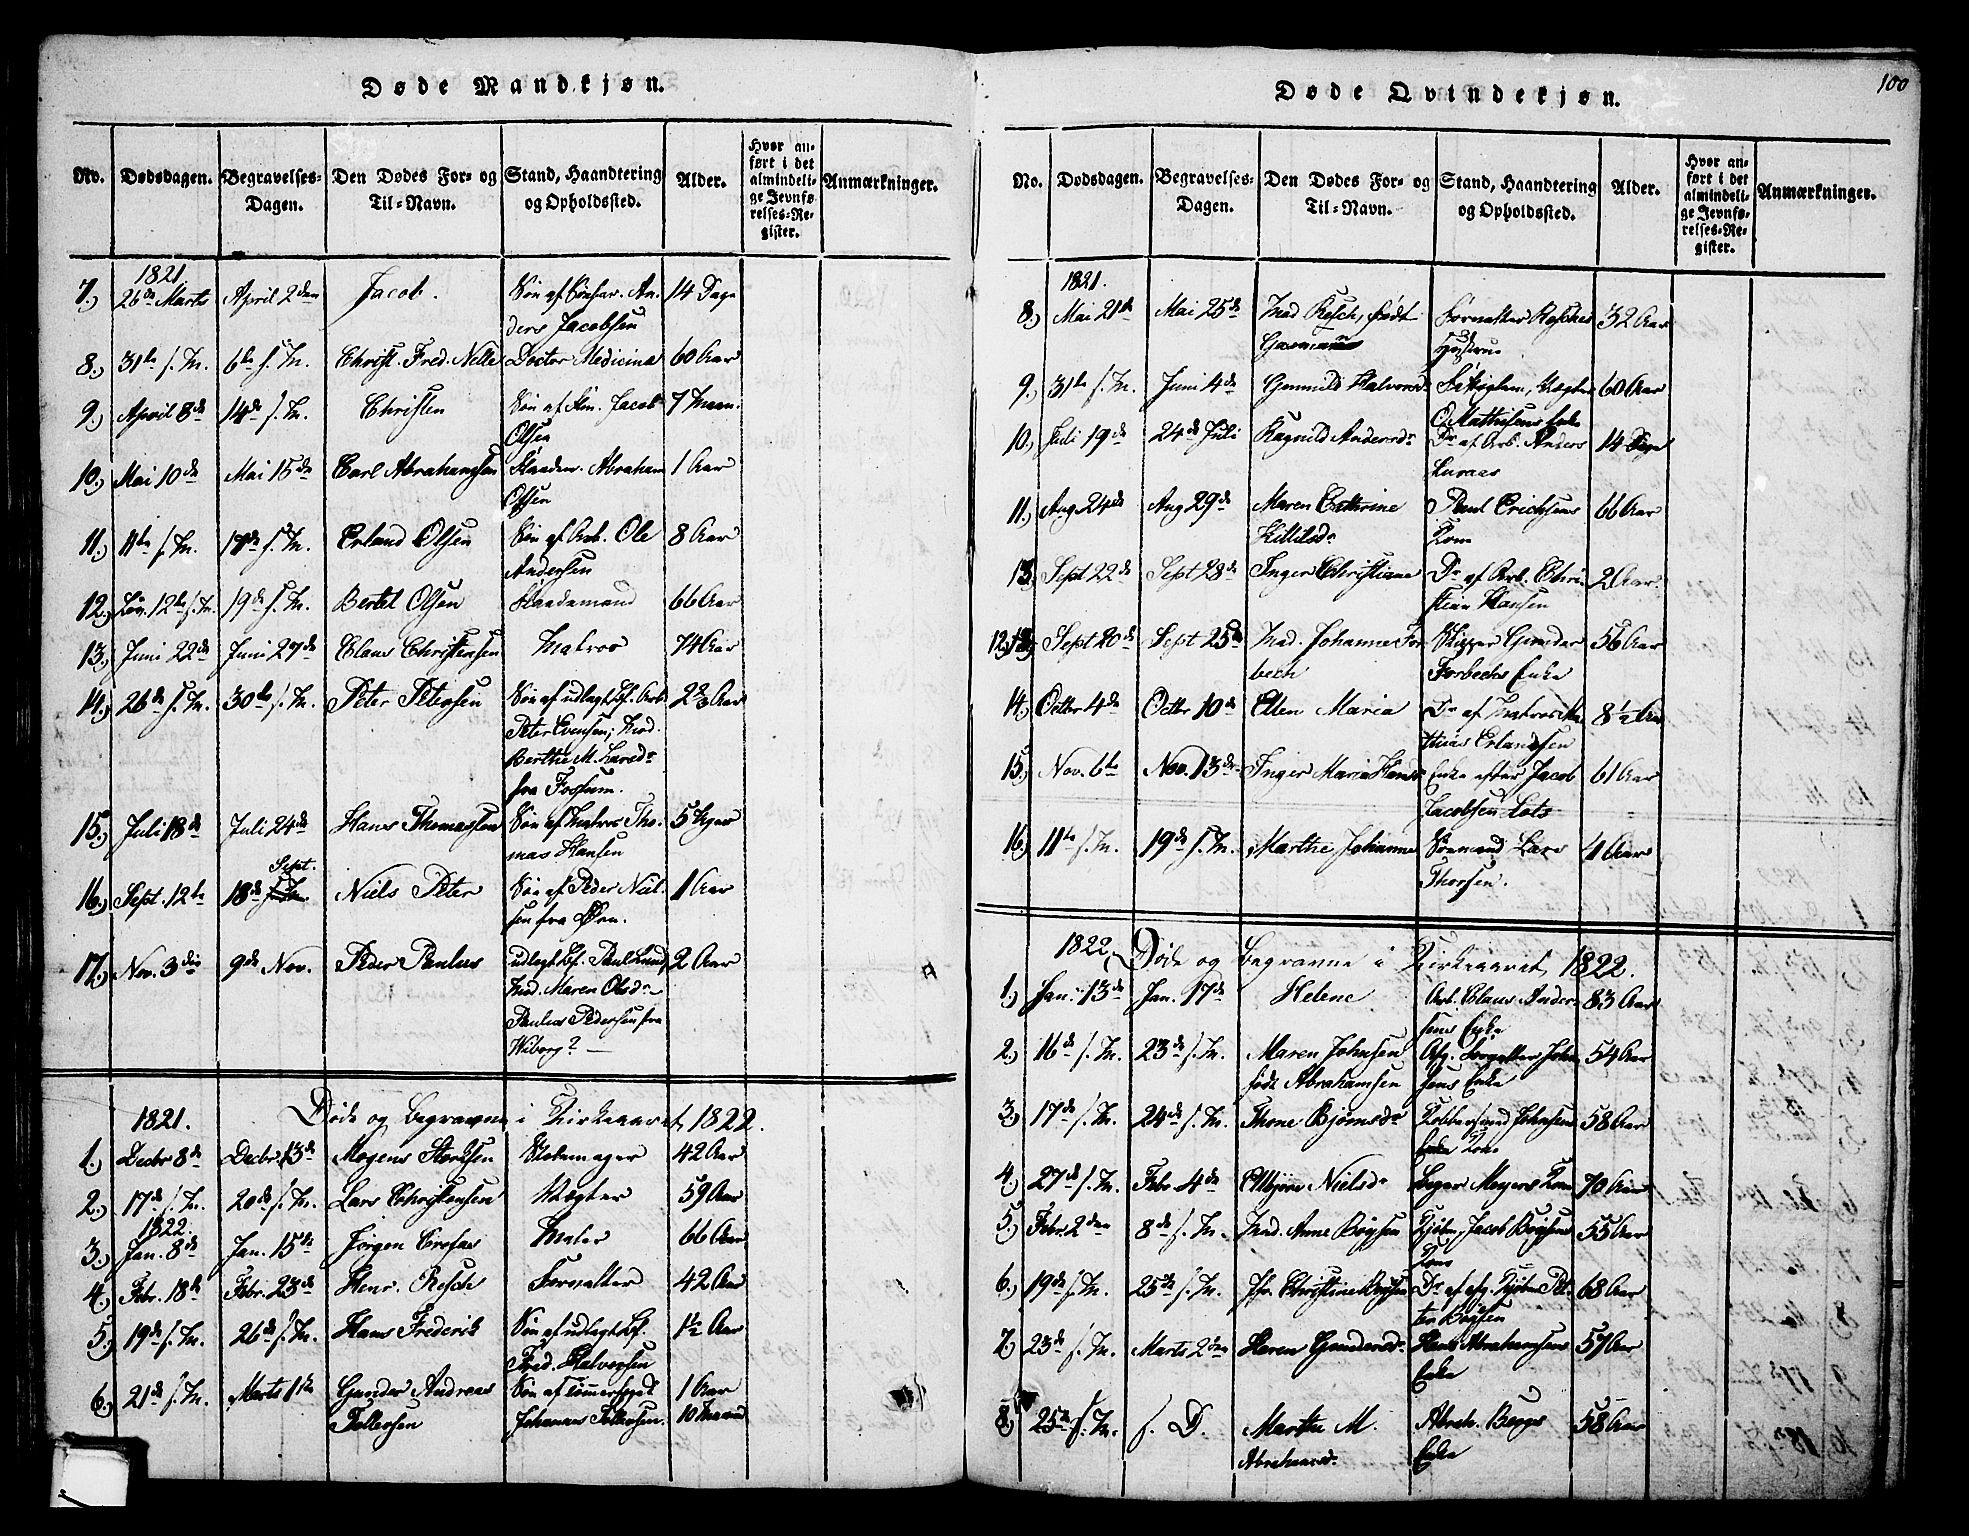 Døde Mandkjøn.
No. Dødsdagen. Begravelses-Dagen. Den Dødes For- og Til-Navn. Stand, Haandtering og Opholdssted. Alder. Hvor anført i det almindelige Jevnførelses-Register. Anmærkninger.
1821.
7.) 26de Marts April 2den Jacob. Søn af Anders Jacobsen 14 Dage
8.) 31te s. M. 6te s. M. Christ. Fred. Nelle Doctor Medicina 60 Aar
9.) April 8de 14de s. M. Christen Søn af Jacob Olsen 7 Maan.
10.) Mai 10de Mai 15de Carl Abrahamsen Abraham Olsen 1 Aar
11.) 11te s. M. 17de s. M. Erland Olsen Søn af Arb. Ole Andersen 8 Aar
12.) 12te s. M. 19de s. M. Bertel Olsen 66 Aar
13.) Juni 22de Juni 27de Claus Christensen Matros 74 Aar
14.) 26de s. M. 30te s. M. Peter Petersen Søn af udlagt Bf. Arb.
Peter Evensen, Mod.
Berthe M. Larsdr
fra Fossum.
15.) Juli 18de Juli 24de Hans Thomassen Søn af Matros Thomas Hansen 5 Uger
16.) Sept. 12te 18de Sept. s. M. Niels Peter Søn af Peder Nielsen fra Øen. 1 Aar
17.) Nov. 3die 9de Nov. Peder Paulus udlagt Bf. Paul Lund, 2 Aar
Mod. Maren Olsdr
Paulus Pedersen fra
Wiborg? —
1821. Døde og Begravne i Kirkeaaret 1822.
1.) Decbr 8de Decbr. 13de Mogens Størksen Skomager 42 Aar
2.) 17de s. M. 20de s. M. Lars Christensen Vægter 59 Aar
1822.
3.) Jan. 8de Jan. 15te Jørgen Maler 66 Aar
4.) Febr. 18de Febr. 23de Henr. Resch Forvalter 42 Aar
5.) 19de s. M. 26de s. M. Hans Frederik Søn af udlagt Bf. Fred. Halvorsen 1½ Aar
6.) 21de s. M. Marts 1ste Gunder Andreas Tollevsen Søn af Johannes Tollevsen. 1 Aar 10 Maaned
Døde Qvindekjøn.
100
No. Dødsdagen. Begravelses-Dagen. Den Dødes For- og Til-Navn. Stand, Haandtering og Opholdssted. Alder. Hvor anført i det almindelige Jevnførelses-Register. Anmærkninger.
1821.
8.) Mai 21de Mai 25de Mad. Resch, født Forvalter Resches Hustrue 32 Aar
9.) 31te s. M. Juni 4de Gunnild Halvorsdr Vægter O. Mathisens Enke 60 Aar
10.) Juli 19de 24de Juli Ragnild Andersdr Dr af Arb. Anders Luraas 14 Dage
11.) Aug. 24de Aug 29de Maren Cathrine Killilsdr Paul Erichsens Kone 66 Aar
13. Sept 22de Sept 28de Inger Christiane Dr af Arb. Christian Hansen 2 Aar.
12.) Sept 20de Sept 25de Mad. Johanne Forbech Skipper Gunder Forbechs Enke 56 Aar
14.) Octbr 4de Octbr 10de Ellen Maria Dr af Matros Mathias Erlandsen 8½ Aar
15.) Nov. 6te Nov. 13de Inger Maria Hansdr Enke efter Jacob Jacobsen Lots 61 Aar
16.) 11te s. M. 19de s. M. Marthe Johanne Lars Thorsen. 4 Aar
1822. Døde og Begravne i Kirkeaaret 1822.
1.) Jan. 13de Jan. 17de Helene Arb. Claus Andersens Enke 83 Aar
2.) 16de s. M. 23de s. M. Maren Johnsen født Abrahamsen Afg. Forvalter Johnsens Enke 54 Aar
3.) 17de s. M. 24de s. M. Thone Bjørnsdr Johnsens Kone 58 Aar
4.) 27de s. M. Febr. 4de Nielsdr Meyers Kone 70 Aar
5.) Febr. 2den 8de s. M. Mad. Anne Bøysen Kjøbm. Jacob Bøysens Kone 55 Aar
6.) 19de s. M. 25de s. M. Jfr. Christine Bøysen Dr af afg. Kjøbm. Peter Bøysen 68 Aar
7.) 23de s. M. Marts 2den Karen Gundersdr Hans Abrahamsens Enke 57 Aar
8.) 25de s. M. s. D. Marthe M. Abrahamsdr Abrah. Bøgs Enke 58 Aar